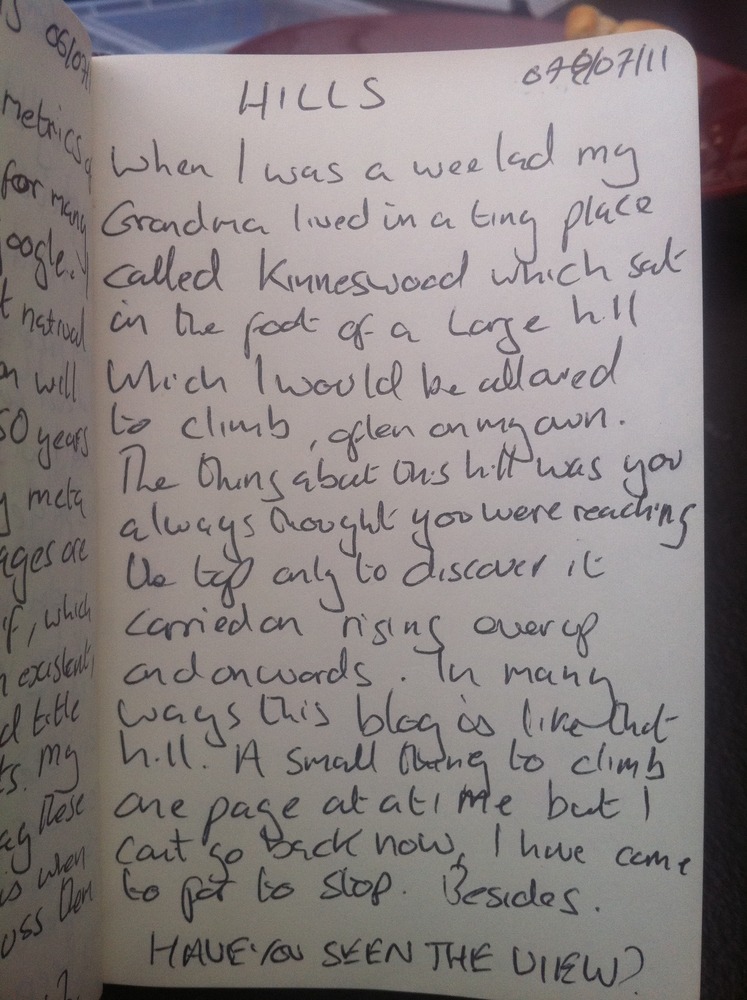 S 06/07/1
metrics
for many
oogle.
t natural
will
50 years
meta
ages are
f, which
existent,
d title
ts. my
these
is when
uss them
HILLS 07/07/11
When I was a wee lad my
Grandma lived in a tiny place
called Kinneswood which sat
in the foot of a large hill
which I would be allowed
to climb, often on my own.
The thing about this hill was you
always thought you were reaching
the top only to discover it
carried on rising ever up
and onwards. In many
ways this blog is like that
hill. A small thing to climb
one page at a time but I
cant go back now, I have come
to far to stop. Besides.
HAVE YOU SEEN THE VIEW?